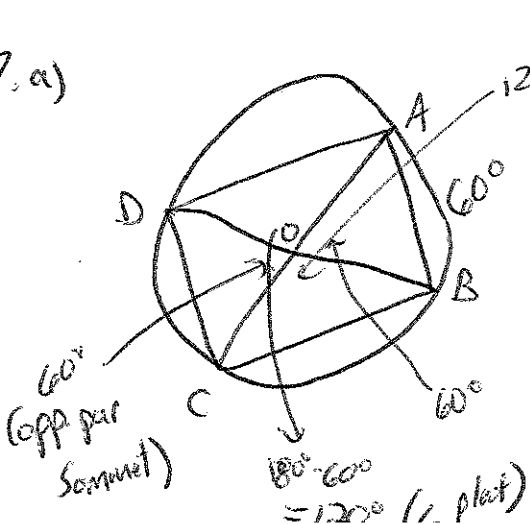 7. a)
12
A
60°
D
O
B
60°
(opp. par
sommet)
C
60°
180°-60°
=120° (∠ plat)